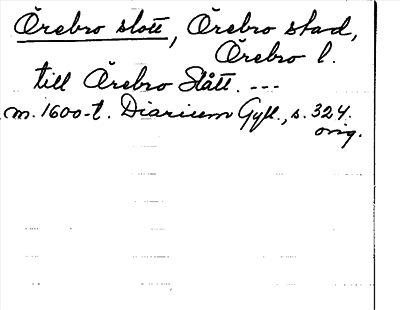 Örebro slott, Örebro stad,
Örebro l.
till Örebro Slått. ---
m. 1600-t. Diarium Gyll., s. 324.
orig.